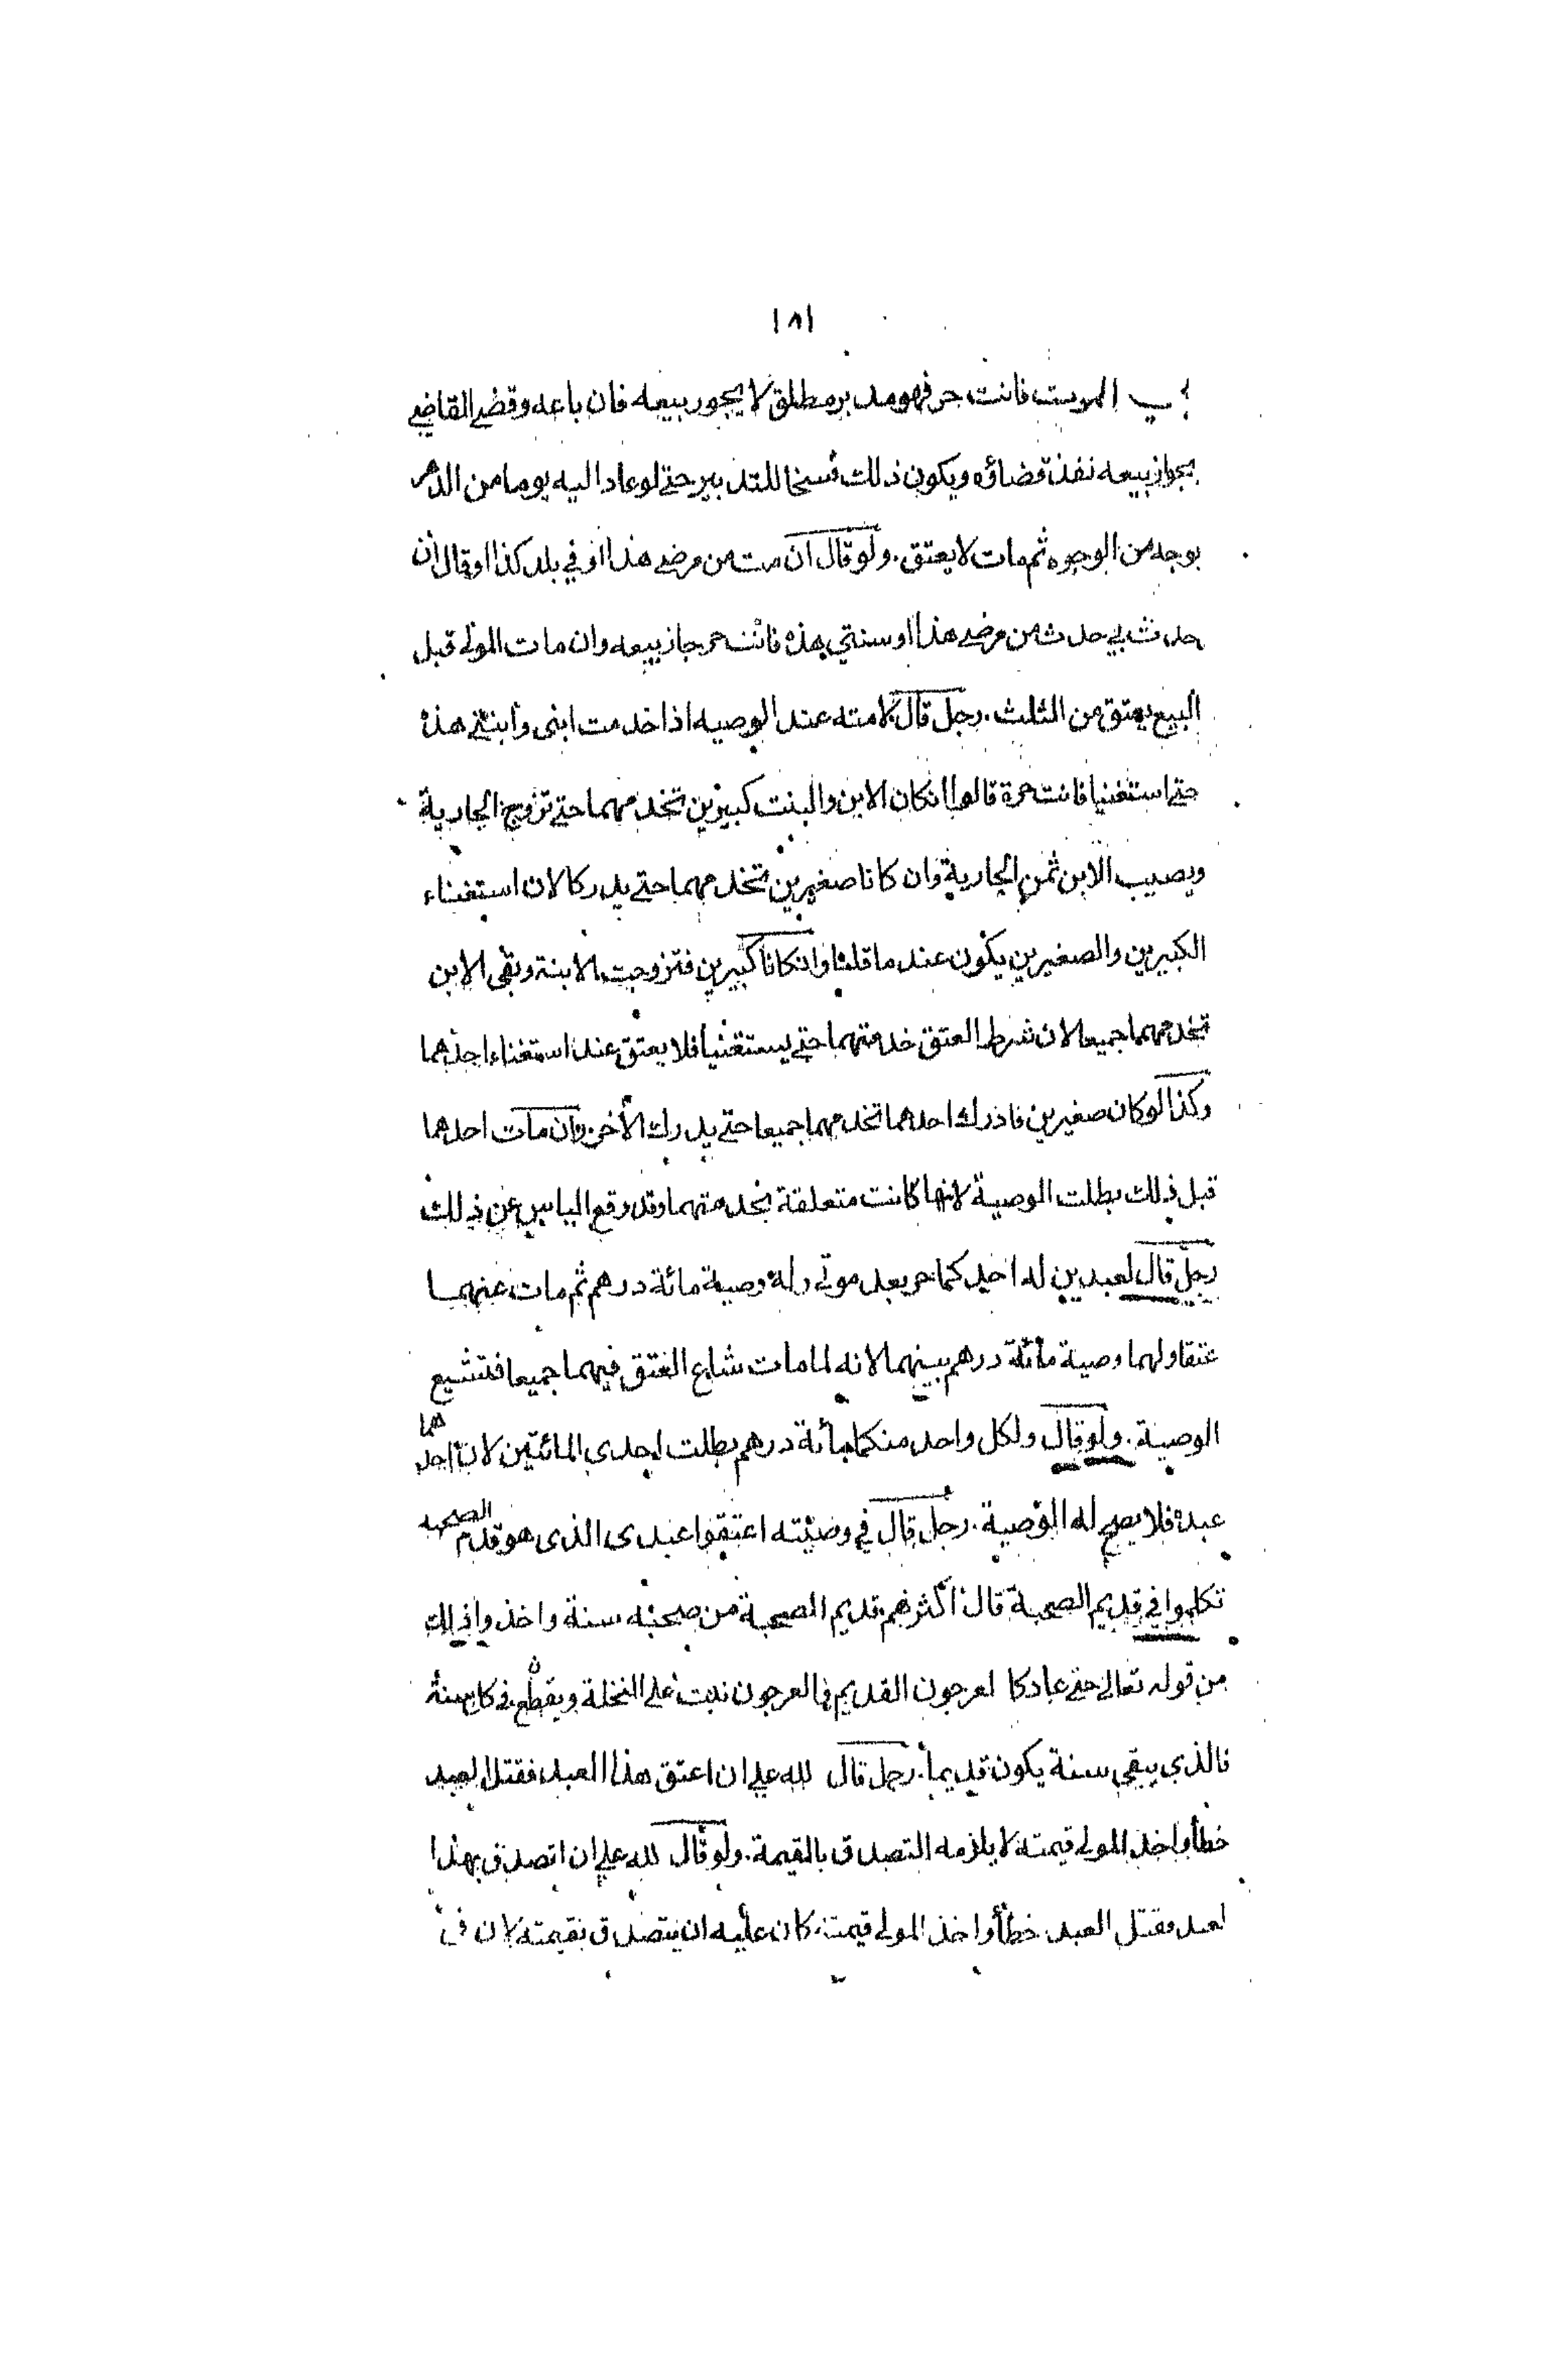 ١٨١
بي الموت فانت حر فهو مدبر مطلق لا يجوز بيعه فان باعه وقضى القاضي
بجواز بيعه نفذ قضاؤه ويكون ذلك فسخا للتدبير حتى لو عاد اليه يوما من الدهر
بوجه من الوجوه ثم مات لا يعتق . ولو قال ان مت من مرضى هذا او في بلد كذا او قال ان
حدث بي حدث من مرضى هذا او سنتي هذه فانت حر جاز بيعه وان مات المولى قبل
البيع يعتق من الثلث . رجل قال لامته عند الوصيه اذا خدمت ابنى وابنتى هذه
حتى استغنيا فانت حرة قالوا انكان الابن والبنت كبيرين تخدمهما حتى تزوج الجارية
ويصيب الابن ثمن الجارية وان كانا صغيرين تخدمهما حتى يدركا لان استغناء
الكبيرين والصغيرين يكون عند ما قلنا وانكانا كبيرين فتزوجت الابنة وبقى الابن
تخدمهما جميعا لان شرط العتق خدمتهما حتى يستغنيا فلا يعتق عند استغناء احدهما
وكذا لو كان صغيرين فادرك احدهما تخدمهما جميعا حتى يدرك الأخر وان مات احدهما
قبل ذلك بطلت الوصية لانها كانت متعلقة بخدمتهما وقد وقع الياس عن ذلك
رجل قال لعبدين له احدكما حر بعد موتى وله وصية مائة درهم ثم مات عنهما
عتقا ولهما وصية مائة درهم بينهما لانه لما مات شاع العتق فيهما جميعا فتشيع
الوصية . ولو قال ولكل واحد منكما مائة درهم بطلت احدى المائتين لان احدهما
عبده فلا يصح له الوصية . رجل قال في وصيته اعتقوا عبدى الذى هو قديم الصحبه
تكلموا في قديم الصحبة قال اكثرهم قديم الصحبة من صحبه سنة واخذوا ذلك
من قوله تعالى حتى عاد كالعرجون القديم فالعرجون نبت على النخلة ويقطع فى كل سنة
فالذي يبقى سنة يكون قديما . رجل قال لله علي ان اعتق هذا العبد فقتل العبد
خطأ واخذ المولى قيمته لا يلزمه التصدق بالقيمة . ولو قال لله علي ان اتصدق بهذا
لعبد فقتل العبد خطأ واخذ المولى قيمته كان عليه ان يتصدق بقيمته لان فى